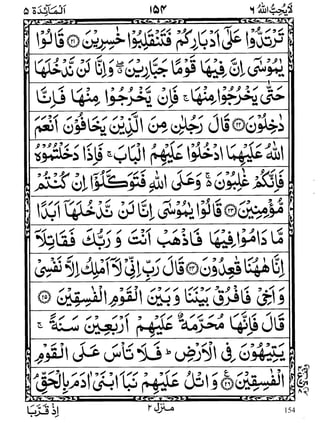 لَا يُحِبُّ اللّٰهُ ٦ ١٥٤ اَلْمَآئِدَة ٥
تَرْتَدُّوْا عَلٰٓى اَدْبَارِكُمْ فَتَنْقَلِبُوْا خٰسِرِيْنَ ﴿٢١﴾ قَالُوْا
يٰمُوْسٰٓى اِنَّ فِيْهَا قَوْمًا جَبَّارِيْنَ ۖ وَاِنَّا لَنْ نَّدْخُلَهَا
حَتّٰى يَخْرُجُوْا مِنْهَا ۚ فَاِنْ يَّخْرُجُوْا مِنْهَا فَاِنَّا
دٰخِلُوْنَ ﴿٢٢﴾ قَالَ رَجُلٰنِ مِنَ الَّذِيْنَ يَخَافُوْنَ اَنْعَمَ
اللّٰهُ عَلَيْهِمَا ادْخُلُوْا عَلَيْهِمُ الْبَابَ ۚ فَاِذَا دَخَلْتُمُوْهُ
فَاِنَّكُمْ غٰلِبُوْنَ ۚ وَعَلَى اللّٰهِ فَتَوَكَّلُوْٓا اِنْ كُنْتُمْ
مُّؤْمِنِيْنَ ﴿٢٣﴾ قَالُوْا يٰمُوْسٰٓى اِنَّا لَنْ نَّدْخُلَهَآ اَبَدًا
مَّا دَامُوْا فِيْهَا فَاذْهَبْ اَنْتَ وَرَبُّكَ فَقَاتِلَآ
اِنَّا هٰهُنَا قٰعِدُوْنَ ﴿٢٤﴾ قَالَ رَبِّ اِنِّيْ لَآ اَمْلِكُ اِلَّا نَفْسِيْ
وَاَخِيْ فَافْرُقْ بَيْنَنَا وَبَيْنَ الْقَوْمِ الْفٰسِقِيْنَ ﴿٢٥﴾
قَالَ فَاِنَّهَا مُحَرَّمَةٌ عَلَيْهِمْ اَرْبَعِيْنَ سَنَةً ۚ
يَتِيْهُوْنَ فِي الْاَرْضِ ؕ فَلَا تَاْسَ عَلَى الْقَوْمِ
الْفٰسِقِيْنَ ﴿٢٦﴾ وَاتْلُ عَلَيْهِمْ نَبَاَ ابْنَيْ اٰدَمَ بِالْحَقِّ ۘ
اِذْ قَرَّبَا منزل ٢ 154